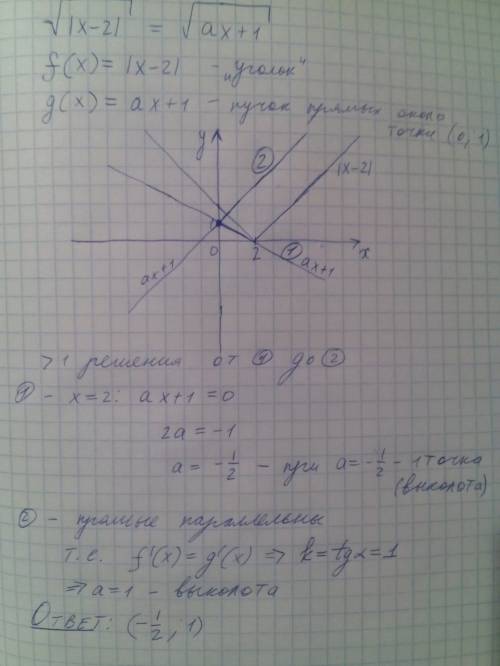 √|x-2| = √ax+1
f(x) = |x-2| - „уголок"
g(x) = ax+1 - пучок прямых около
точки (0, 1)
y
②
|x-2|
1
0
2
①
ax+1
x
ax+1
>1 решения от ① до ②
① - x=2: ax+1=0
2a=-1
a = -1/2 - при a=-1/2 - 1 точка
(выколота)
② - прямые параллельны
т.е. f'(x) = g'(x) ⇒ k=tgα=1
⇒ a=1 - выколота
Ответ: (-1/2, 1)